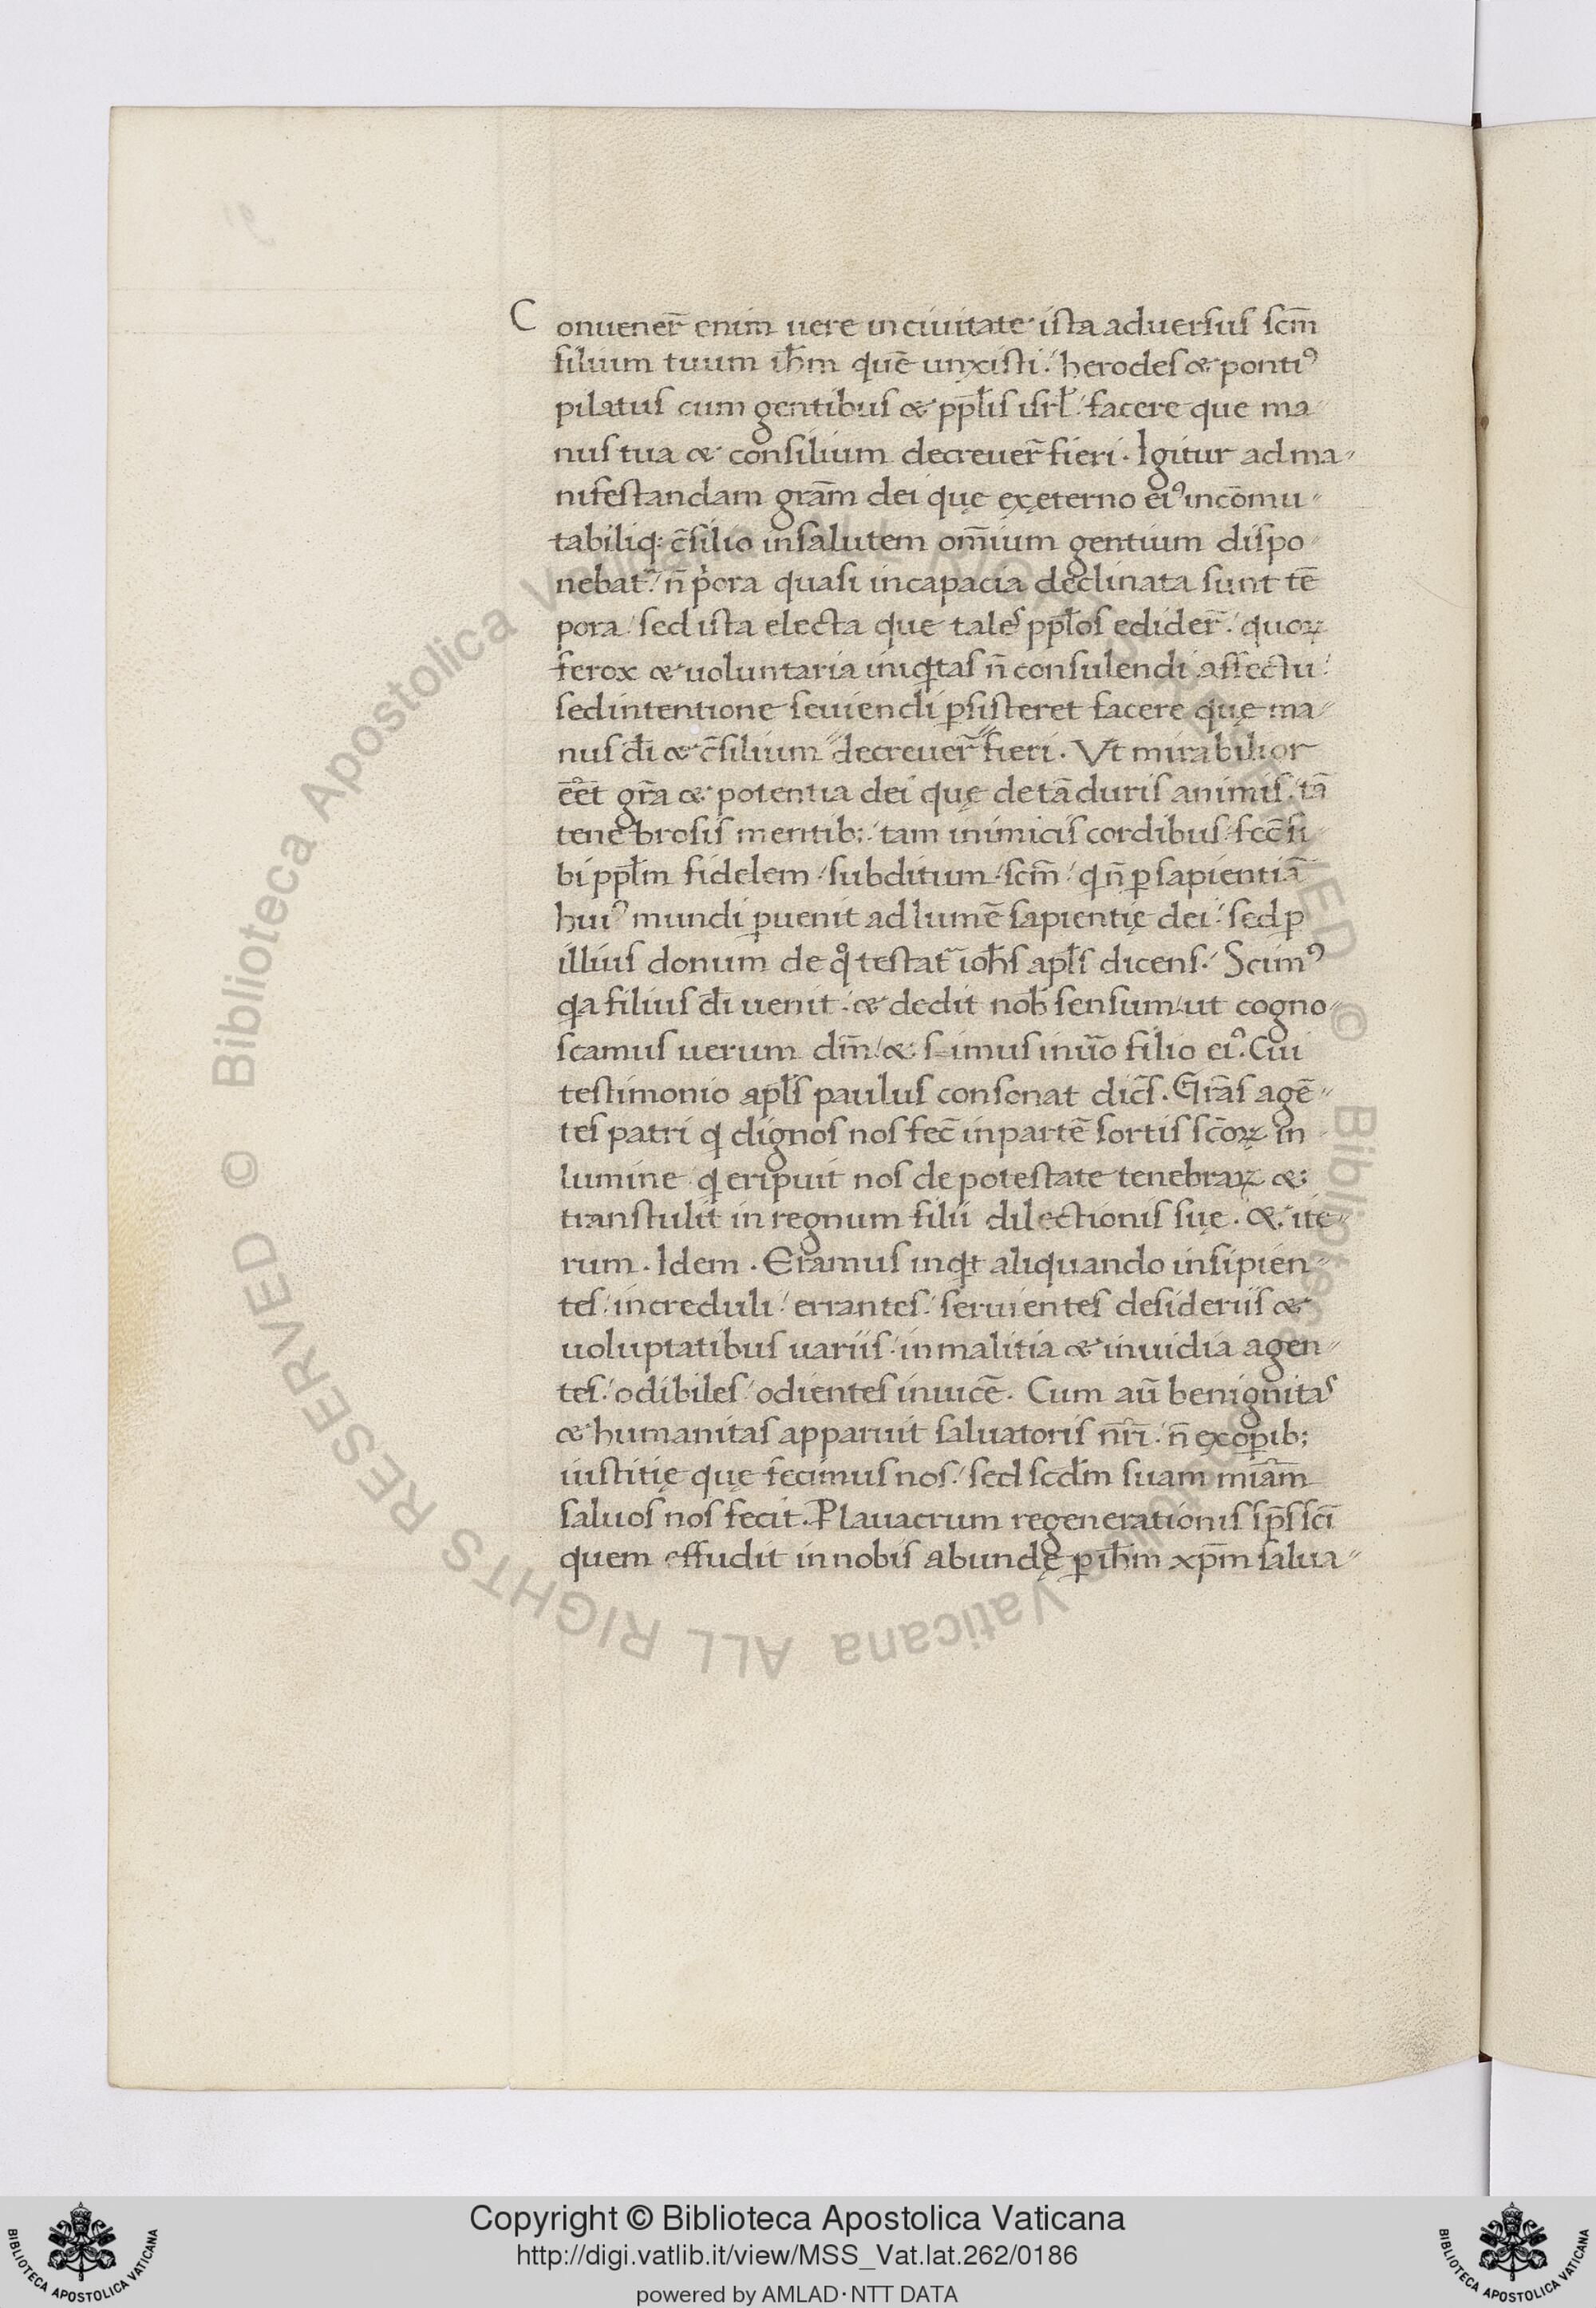 Conuener̄ enim uere in ciuitate ista aduersus scm̄
filium tuum ih̄m quē unxisti · herodes & ponti⁹
pilatus cum gentibus & ppl̄is isrl̄ · facere que ma
nus tua & consilium decreuer̄ fieri · Igitur ad ma-
nifestandam grām dei quę exęterno ei⁹ incōmu-
tabiliq: c̄silio in salutem om̄ium gentium dispo-
nebat̄ · n̄ p̍ora quasi incapacia declinata sunt tē
pora · sed ista electa que tales ppl̄os edider̄ · quoꝝ
ferox & uoluntaria iniqͥtas n̄ consulendi affectu ·
sed intentione seuiendi ꝑsisteret facere quę ma-
nus dī & c̄silium decreuer̄ fieri · Vt mirabilior
ēēt gr̄a & potentia dei quę de tā duris animis · tā
tenebrosis mentib; · tam inimicis cordibus · fec̄ si-
bi ppl̄m fidelem · subditum · scm̄ · qͥ n̄ ꝑ sapientiā
hui⁹ mundi ꝑuenit ad lumē sapientię dei · sed ꝑ
illius donum de qͦ testat̄ ioh̄s apl̄s dicens · Scim⁹
qͥa filius dī uenit · & dedit nob̄ sensum · ut cogno-
scamus uerum dm̄ · & s-imus in uͬo filio ei⁹. Cui
testimonio apl̄s paulus consonat dic̄s. Grās agē-
tes patri qͥ dignos nos fec̄ in partē sortis sc̄oꝝ in
lumine qͥ eripuit nos de potestate tenebraꝝ &
transtulit in regnum filii dilectionis suę · & · ite-
rum · Idem · Eramus inqͥt aliquando insipien-
tes · increduli · errantes · seruientes desideriis &
uoluptatibus uariis · in malitia & inuidia agen-
tes · odibiles · odientes inuicē · Cum aū benignitas
& humanitas apparuit saluatoris nr̄i · n̄ ex oꝑib;
iustitię quę fecimus nos · sed scd̄m suam miām
saluos nos fecit. P lauacrum regenerationis sp̄s scī
quem effudit in nobis abundę ꝑ ih̄m xp̄m salua-
Copyright © Biblioteca Apostolica Vaticana
http://digi.vatlib.it/view/MSS_Vat.lat.262/0186
powered by AMLAD·NTT DATA